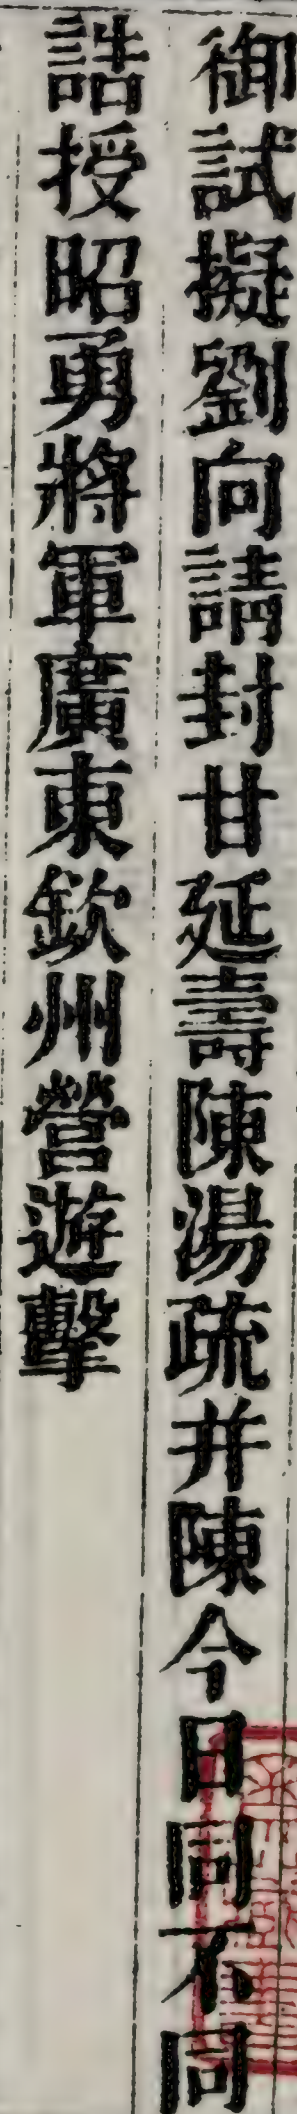 御試擬劉向請封甘延壽陳湯疏并陳今日同不同
誥授昭勇將軍廣東欽州營遊擊